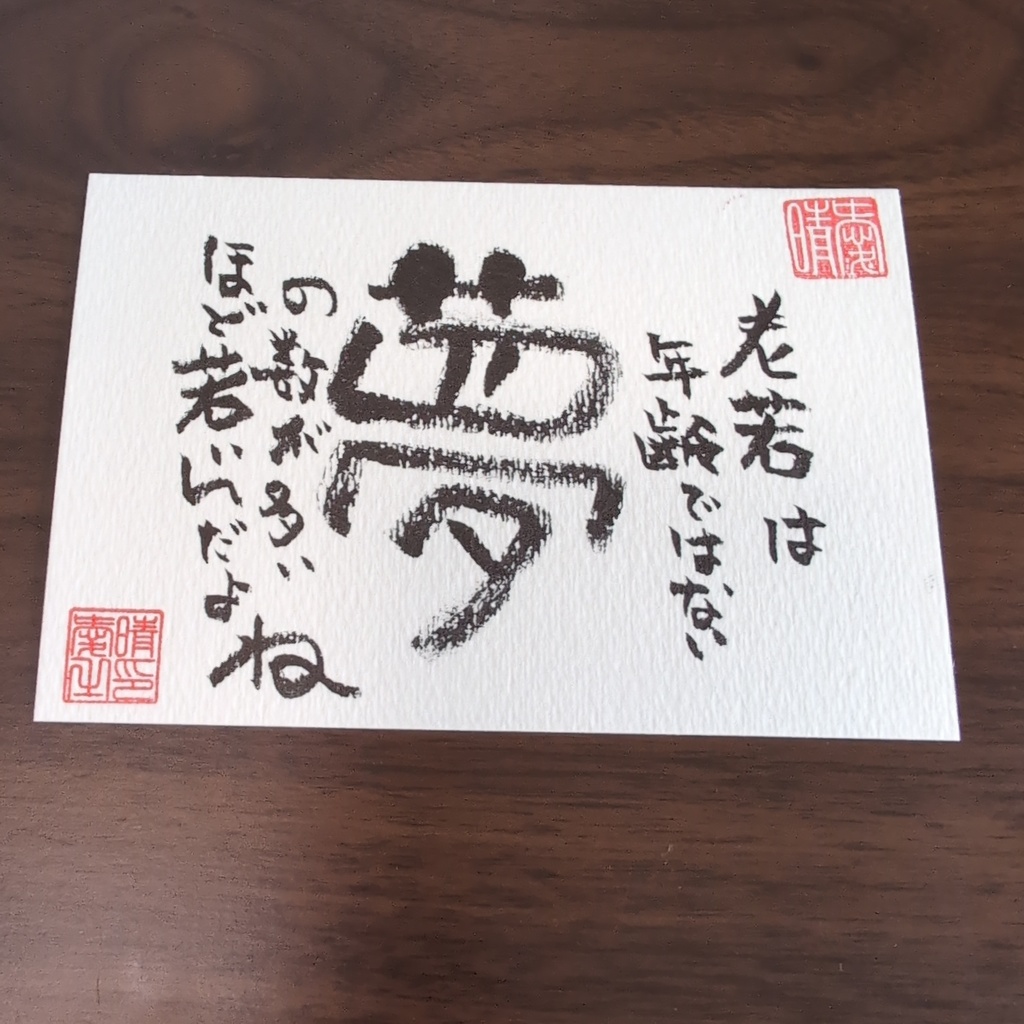 老若は
年齢ではない
夢
の数が多い
ほど若いんだよ
ね